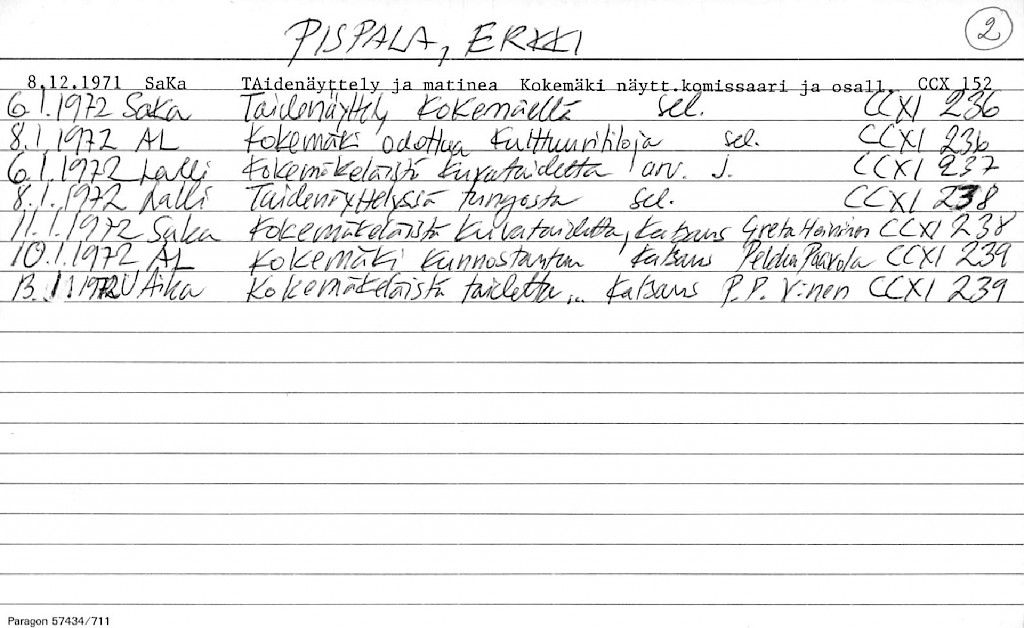 PISPALA, ERKKI 2
8.12.1971 SaKa TAidenäyttely ja matinea Kokemäki näytt.komissaari ja osall. CCX 152
6.1.1972 SaKa Taidenäyttely Kokemäellä sel. CCXI 236
8.1.1972 AL Kokemäki odottaa kulttuuritiloja sel. CCXI 236
6.1.1972 Lalli Kokemäkeläistä kuvataidetta arv. J. CCXI 237
8.1.1972 Lalli Taidenäyttelyssä tungosta sel. CCXI 238
11.1.1972 SaKa Kokemäkeläistä kuvataidetta, katsaus Greta Heininen CCXI 238
10.1.1972 AL Kokemäki kunnostautuu katsaus Pekka Paavola CCXI 239
13.1.1972 U Aika Kokemäkeläistä taidetta... katsaus P.P. V:nen CCXI 239
Paragon 57434/711